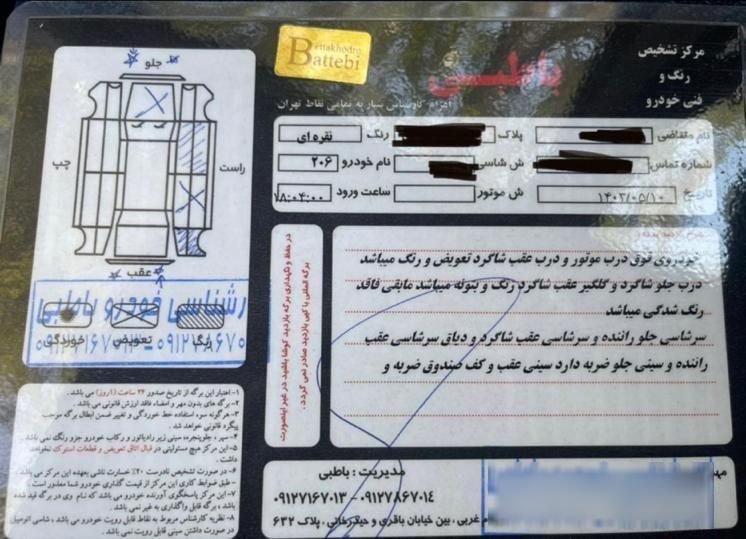 Bettakhodro
Battebi
باطبی
مرکز تشخیص
رنگ و
فنی خودرو
اعزام کارشناس سیار به تمامی نقاط تهران
نام متقاضی
پلاک
رنگ نقره ای
شماره تماس
ش شاسی
نام خودرو ۲۰۶
تاریخ ۱۴۰۳/۰۵/۱۰
ش موتور
ساعت ورود ۱۸:۰۴:۰۰
خودروی فوق درب موتور و درب عقب شاگرد تعویض و رنگ میباشد
درب جلو شاگرد و گلگیر عقب شاگرد رنگ و بتونه میباشد مابقی فاقد
رنگ شدگی میباشد
سرشاسی جلو راننده و سرشاسی عقب شاگرد و دیاق سرشاسی عقب
راننده و سینی جلو ضربه دارد سینی عقب و کف صندوق ضربه و
جلو
راست
چپ
عقب
رنگ
تعویض
خوردگی
در حفظ و نگهداری برگه بازدید کوشا باشید در غیر اینصورت
برگه المثنی یا کپی بازدید صادر نمی گردد.
۱- اعتبار این برگه از تاریخ صدور ۲۴ ساعت (۱روز) می باشد.
۲- برگه های بدون مهر و امضاء فاقد ارزش قانونی می باشد.
۳- هرگونه سوء استفاده خط خوردگی و تغییر ضمن ابطال برگه موجب
پیگرد قانونی خواهد شد.
۴- سپر، جلوپنجره، سینی زیر رادیاتور و رکاب خودرو جزو رنگ نمی باشد.
۵- این مرکز هیچ مسئولیتی در قبال اتاق تعویض و قطعات استوک نخواهد
داشت.
۶- در صورت تشخیص نادرست ۲۰٪ خسارت ناشی بعهده این مرکز می باشد.
- طبق ضوابط کاری این مرکز از قیمت گذاری خودرو شما معذور است.
۷- این مرکز پاسخگوی آورنده خودرو می باشد که نام وی در برگه قید شده
باشد، برگه قابل واگذاری به غیر نمی باشد.
۸- نظریه کارشناس مربوط به نقاط قابل رویت خودرو می باشد،
در صورت داشتن سینی قابل رویت نمی باشد.
مدیریت: باطبی
۰۹۱۲۷۸۶۷۰۱۴ - ۰۹۱۲۷۱۶۷۰۱۳
غربی، بین خیابان باقری و حیدرخانی، پلاک ۶۳۲